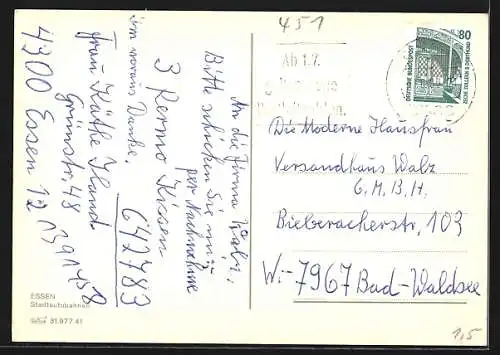 451
80
DEUTSCHE BUNDESPOST
ZECHE ZOLLERN II DORTMUND
Ab 1.7.
An die Firma Walz.
Bitte schicken Sie mir
per Nachnahme
3 Rermo Kissen
642783
im voraus Danke.
Frau Käthe Hand
Grünstr. 48
4300 Essen 12
Die Moderne Hausfrau
Versandhaus Walz
G.M.B.H.
Bieberacherstr, 103
W:-7967 Bad-Waldsee
ESSEN
Stadtautobahnen
31.977 41
1,5